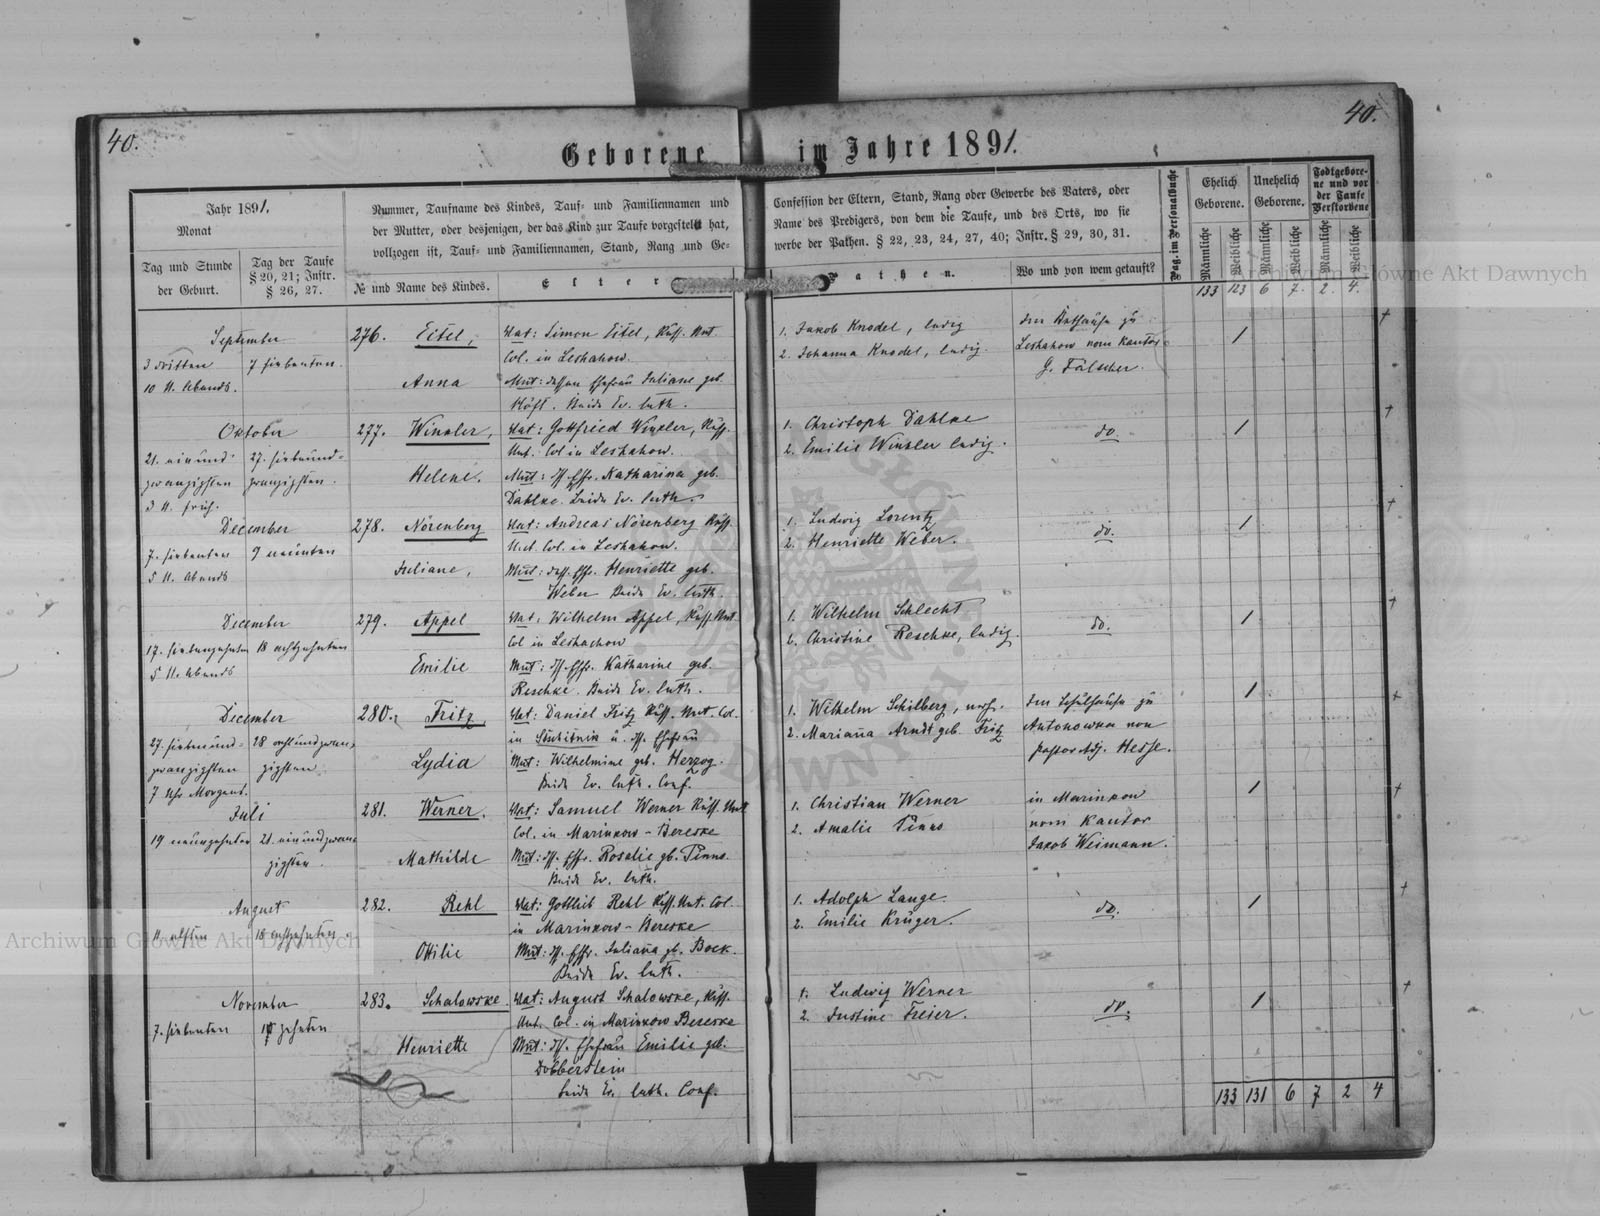 40.
40.
Geborene im Jahre 1891.
Jahr 1891.
Monat
Tag und Stunde
der Geburt.
Tag der Taufe
§ 20, 21; Instr.
§ 26, 27.
Nummer, Taufname des Kindes, Tauf- und Familiennamen und
der Mutter, oder desjenigen, der das Kind zur Taufe vorgestellt hat,
vollzogen ist, Tauf- und Familiennamen, Stand, Rang und Ge-
№ und Name des Kindes.
Elter
Confession der Eltern, Stand, Rang oder Gewerbe des Vaters, oder
Name des Predigers, von dem die Taufe, und des Orts, wo sie
werbe der Pathen. § 22, 23, 24, 27, 40; Instr. § 29, 30, 31.
Pathen.
Wo und von wem getauft?
Pag. im Personalbuche
Ehelich
Geborene.
Unehelich
Geborene.
Todtgebore-
ne und vor
der Taufe
Verstorbene
Männliche
Weibliche
Männliche
Weibliche
Männliche
Weibliche
133 123 6 7. 2. 4.
September
3 dritten
10 U. Abends.
7 siebenten.
276. Eitel,
Anna
Vat: Simon Eitel, Russ. Unt.
Col. in Leshakow.
Mut: dessen Ehefrau Juliane geb.
Höft. Beide Ev. luth.
1. Jakob Knodel, ledig
2. Johanna Knodel, ledig.
Im Bethause zu
Leshakow vom Kantor
G. Fälscher.
1
Oktober
21. einund-
zwanzigsten
3 U. früh.
27. siebenund-
zwanzigsten.
277. Winkler,
Helene.
Vat: Gottfried Winkler, Russ.
Unt. Col in Leshakow.
Mut: dss. Ehfr. Katharina geb.
Dahlke. Beide Ev. luth.
1. Christoph Dahlke
2. Emilie Winkler ledig.
do.
1
December
7. siebenten
5 U. Abends
9 neunten
278. Nörenberg
Juliane,
Vat: Andreas Nörenberg Russ.
Unt. Col. in Leshakow.
Mut: dess. Ehfr. Henriette geb.
Weber Beide Ev. luth.
1. Ludwig Lorentz
2. Henriette Weber.
do.
1
December
17. siebenzehnten
5 U. Abends
18 achtzehnten
279. Appel
Emilie
Vat: Wilhelm Appel, Russ. Unt
Col in Leshachow
Mut: dss. Ehfr. Katharine geb.
Reschke. Beide Ev. luth.
1. Wilhelm Schlecht
2. Christine Reschke, ledig.
do.
1
December
27. siebenund-
zwanzigsten
7 Uhr Morgens.
28 achtundzwan-
zigsten
280. Fritz,
Lydia
Vat: Daniel Fritz Russ. Unt. Col.
in u. dss. Ehefrau
Mut: Wilhelmine geb. Herzog.
Beide Ev. luth. Conf.
1. Wilhelm Schilberg,
2. Mariana Arndt geb. Fritz
Im Schulhause zu
Antonowka von
Pastor Adj. Hesse.
1
Juli
19 neunzehnten
21. einundzwan-
zigsten.
281. Werner.
Mathilde
Vat: Samuel Werner Russ. Unt
Col. in Marinkow-Bereske
Mut: dss. Ehfr. Rosalie gb. Pinno.
Beide Ev. luth.
1. Christian Werner
2. Amalie Pinno
in Marinkow
vom Kantor
Jakob Weimann.
1
August
11. elften
18 achtzehnten
282. Rehl
Ottilie
Vat: Gottlieb Rehl Russ. Unt. Col.
in Marinkow-Bereske
Mut: dss. Ehfr. Juliana gb. Bock.
Beide Ev. luth.
1. Adolph Lange
2. Emilie Krüger.
do.
1
November
7. siebenten
10 zehnten
283. Schalowske.
Henriette
Vat: August Schalowske, Russ.
Unt. Col. in Marinkow Bereske
Mut: dss. Ehefrau Emilie geb.
Dobberstein
Beide Ev. luth. Conf.
1. Ludwig Werner
2. Justine Freier.
do.
1
133 131 6 7 2 4
Archiwum Główne Akt Dawnych
Archiwum Główne Akt Dawnych